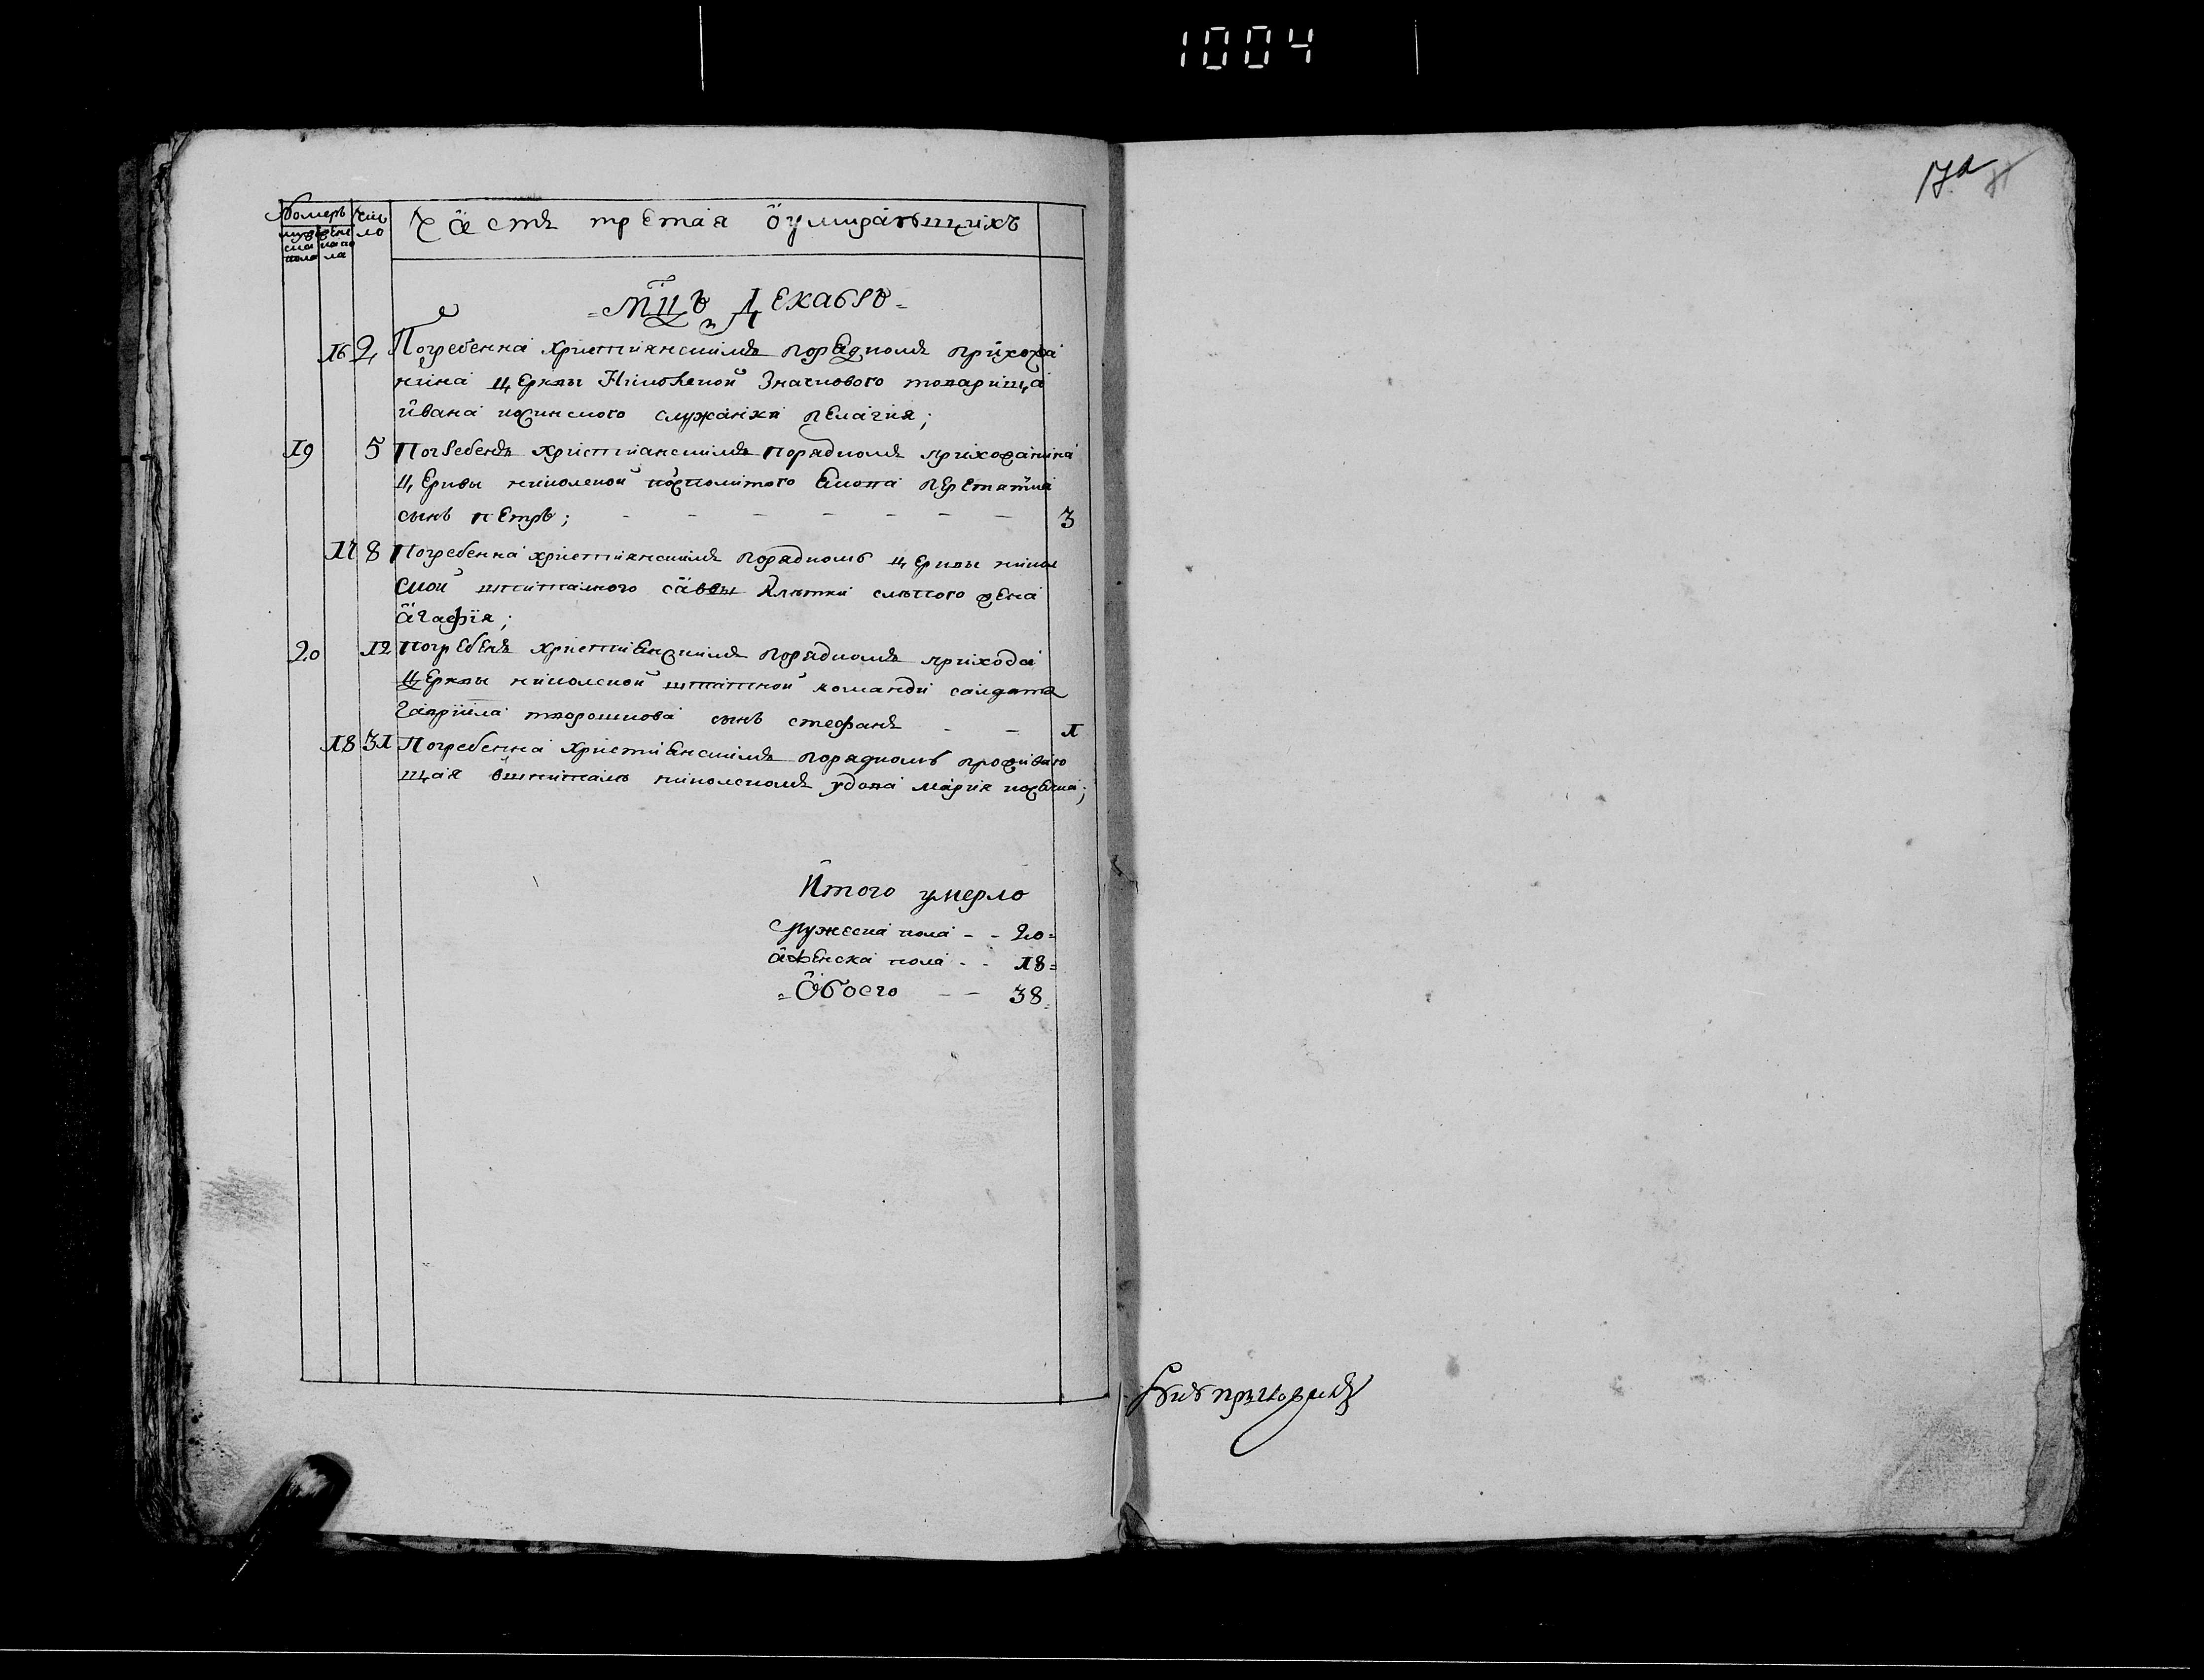 1004
172
Номеръ число
мужеска пола женска пола
Часть третая оумираьщихъ
мцъ Декабръ
16 2 Погребенна христианскимъ порадкомъ прихожа
нина церквы Николской Значкового товарища
ивана служанка пелагия;
19 5 Погребенъ христианскимъ порадкомъ прихожанина
церквы николской посполитого
сынъ петръ; 3
17 8 Погребенна христианскимъ порадкомъ церквы никол
ской шпиталного саввы слепого жена
агафїя;
20 12 Погребенъ христианскимъ порадкомъ прихода
церквы николской штатной команди салдата
гавриила творошкова сынъ стефанъ 1
18 31 Погребенна христианскимъ порадкомъ прожываю
щая вшпиталъ николскомъ удова мария
Итого умерло
Мужеска пола - - 20
аженска пола - - 18
Обоего - - 38